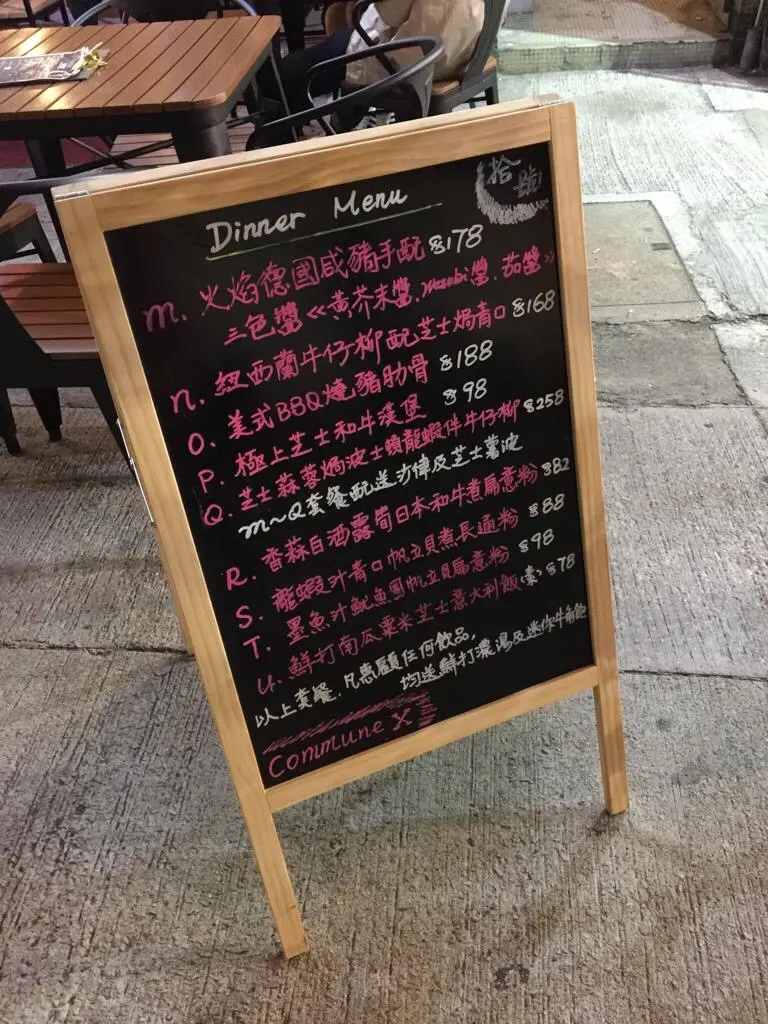 拾號
Dinner Menu
M. 火焰德國咸豬手配 $178
三色醬<<黃芥末醬.wasabi醬.茄醬>>
N. 紐西蘭牛仔柳配芝士焗青口 $168
O. 美式BBQ燒豬肋骨 $188
P. 極上芝士和牛漢堡 $98
Q. 芝士蒜蓉焗波士頓龍蝦伴牛仔柳 $258
M~Q套餐配送沙律及芝士薯波
R. 香蒜白酒露筍日本和牛煮扁意粉 $82
S. 龍蝦汁青口帆立貝煮長通粉 $88
T. 墨魚汁魷魚圈帆立貝扁意粉 $98
U. 鮮打南瓜粟米芝士意大利飯(素) $78
以上套餐.凡惠顧任何飲品,
均送鮮打濃湯及迷你牛角飽
Commune X